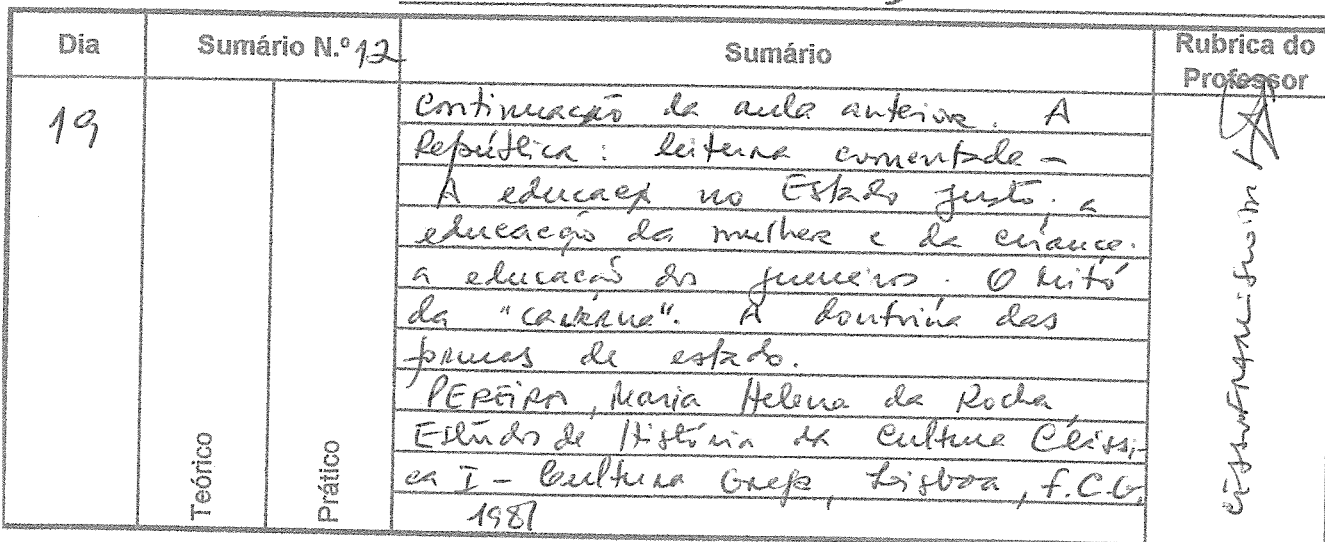 Dia Sumário N.º 12 Sumário Rubrica do Professor
19
Continuação da aula anterior. A
República: leitura comentada –
A educação no Estado justo; a
educação da mulher e da criança.
a educação dos guerreiros. O mito
da "caverna". A doutrina das
formas de estado.
PEREIRA, Maria Helena da Rocha,
Estudos de História da Cultura Clássi-
ca I – Cultura Grega, Lisboa, F.C.G,
1981
Teórico
Prático